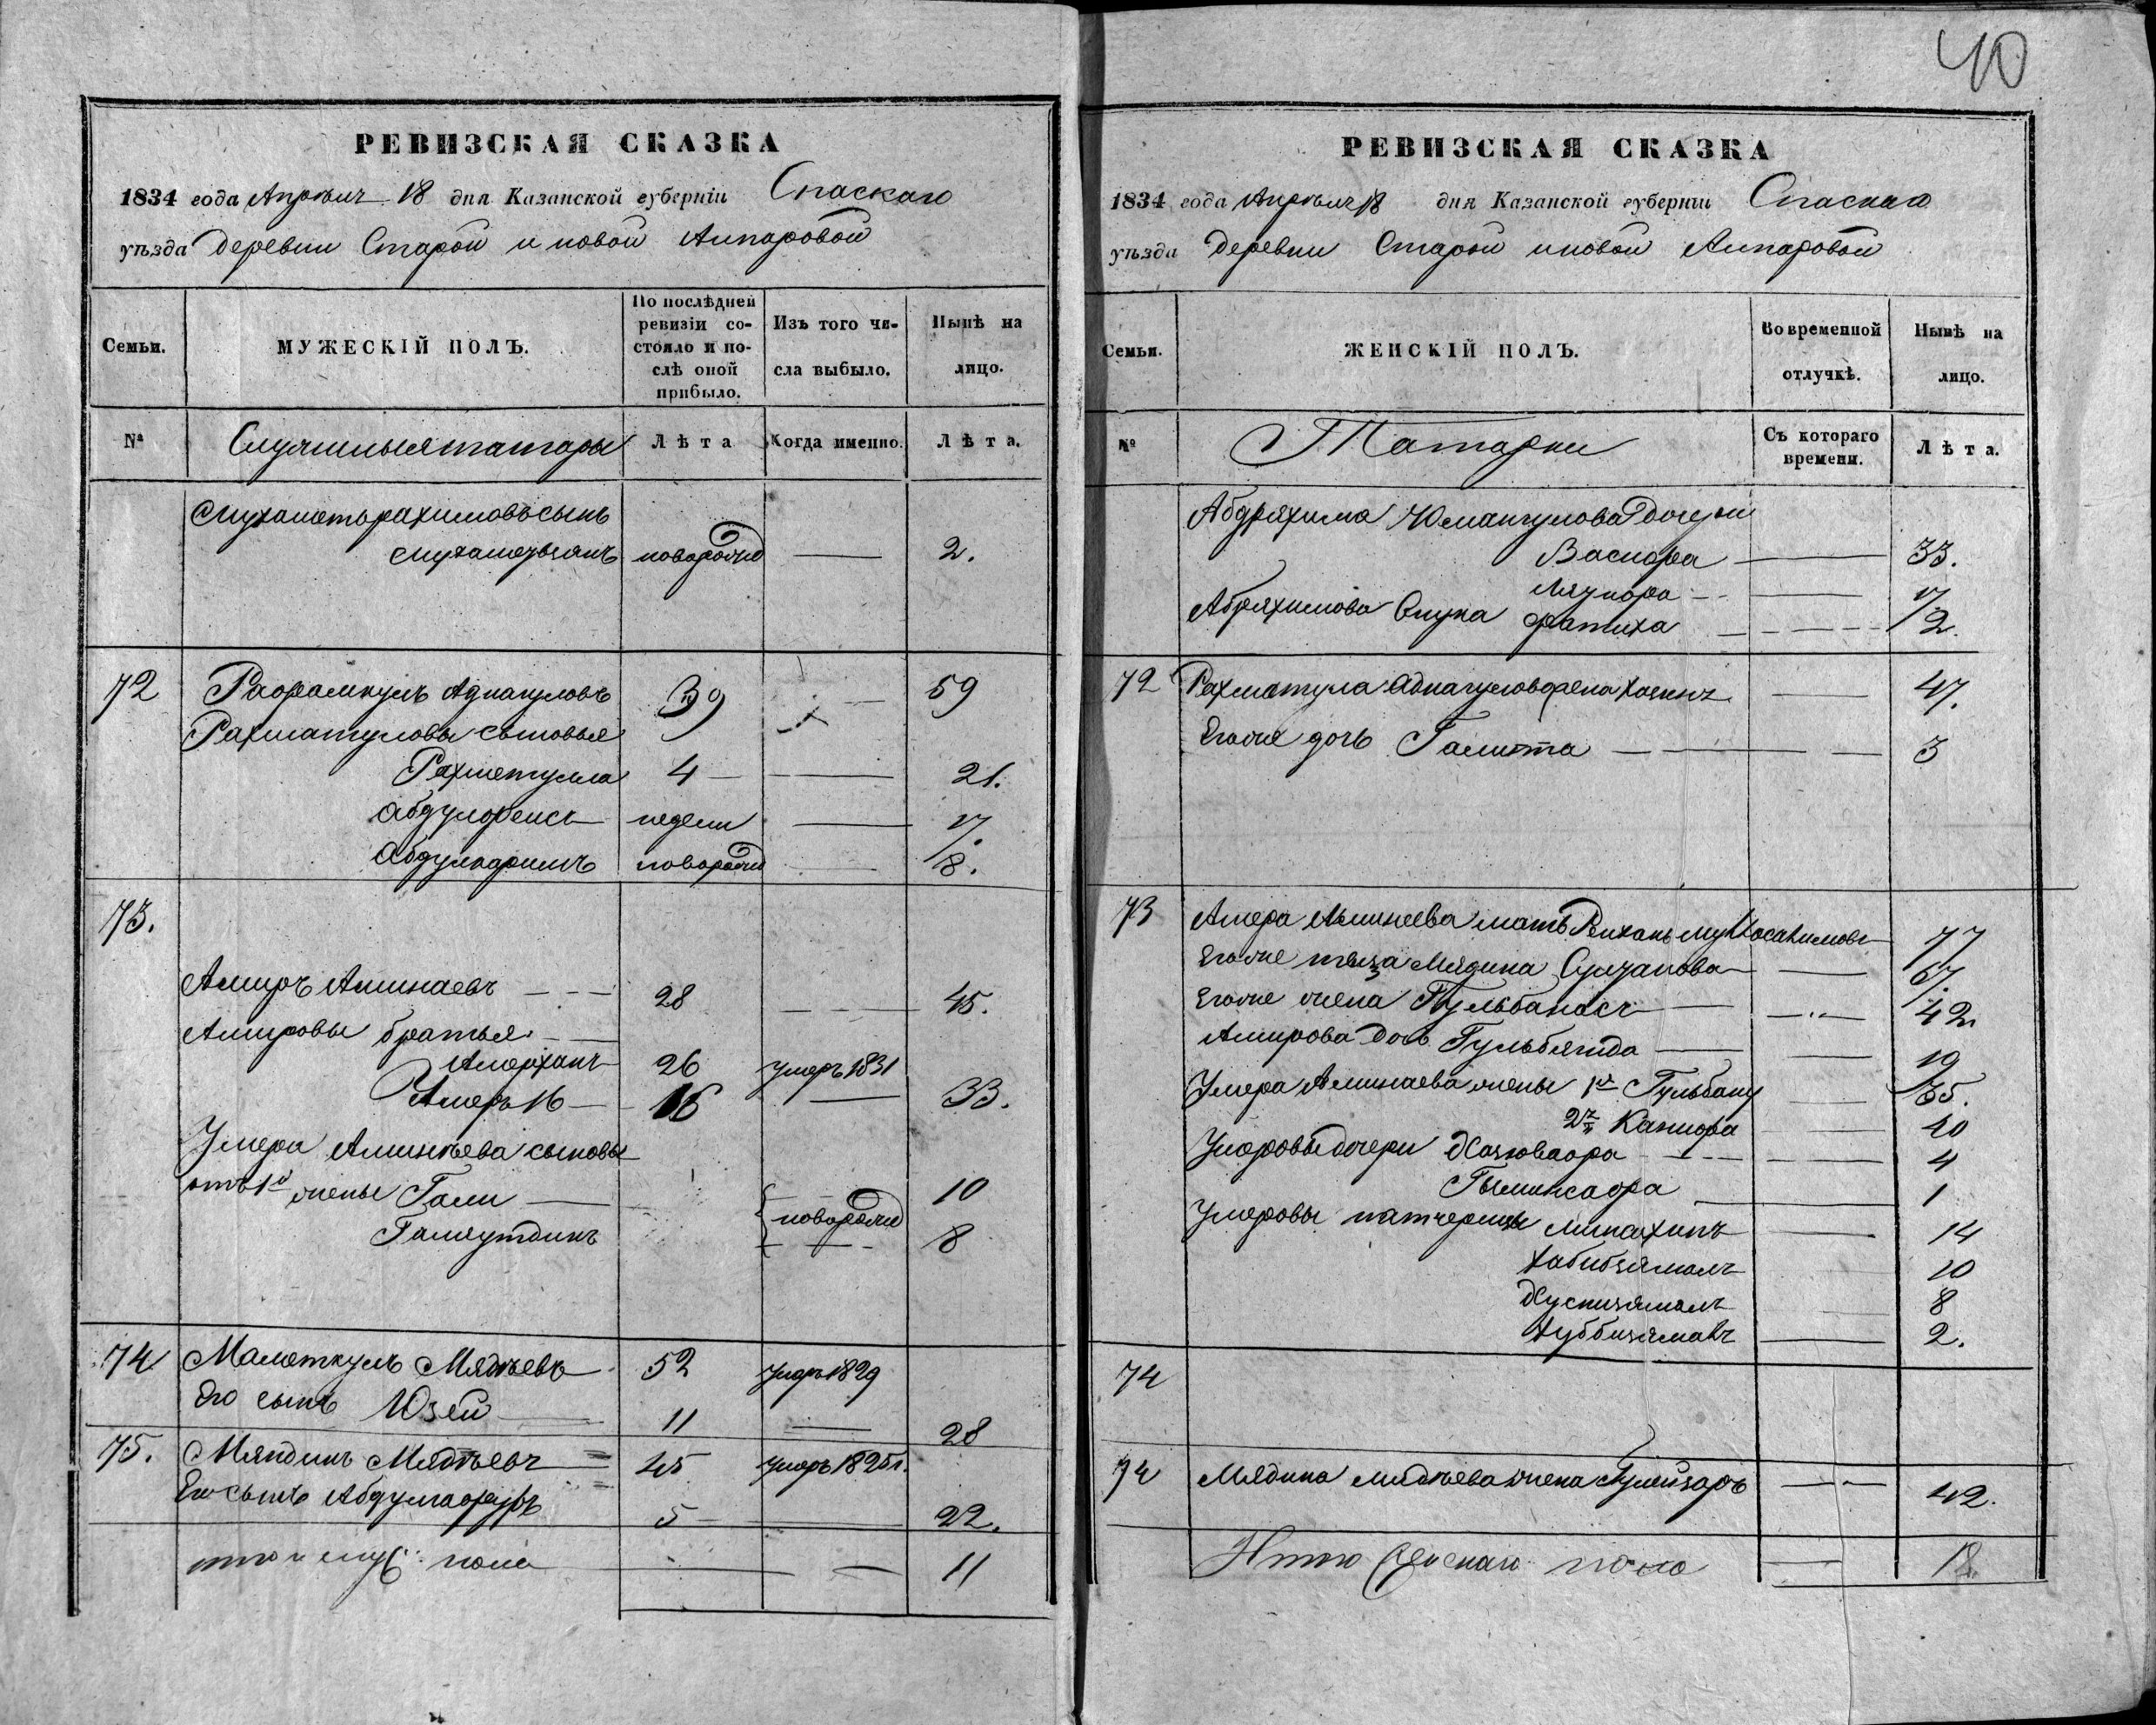 40
РЕВИЗСКАЯ СКАЗКА
1834 года Апрѣля 18 дня Казанской губерніи Спаскаго
уѣзда деревни Старой и новой Алпаровой
Семьи.
МУЖЕСКІЙ ПОЛЪ.
По послѣдней ревизіи состояло и послѣ оной прибыло.
Изъ того числа выбыло.
Нынѣ на лицо.
№
Служилыя татары
Лѣта
Когда именно.
Лѣта.
Мухаметьрахимовъ сынъ
Мухаметзянъ новорожд — 2.
72 Адналуловъ 39 59
Рахматуловы сыновья
Рахметулла 4 — 21.
недели — 17.
Абдулкаримъ новорожд — 8.
73.
Амиръ Аминаевъ 28 45.
Амировы братья
Амерханъ 26 умеръ 1831
Умеръ 16 16 — 33.
Умера Аминѣева сыновья
отъ 1й жены Гали — новорожд 10
Галяутдинъ 8
74 Маметкулъ Мядѣевъ 52 умеръ 1829
Его сынъ Юзей 11 — 28
75. Мяндинъ Мядѣевъ 45 умеръ 1825г.
Его сынъ 5 — 22.
итого муж: пола — — 11
РЕВИЗСКАЯ СКАЗКА
1834 года Апрѣля 18 дня Казанской губерніи Спаскаго
уѣзда деревни Старой и новой Алпаровой
Семьи.
ЖЕНСКІЙ ПОЛЪ.
Во временной отлучкѣ.
Нынѣ на лицо.
№
Татарки
Съ котораго времени.
Лѣта.
Абдряхима Юмангулова дочери
Васфора — 33.
— 17
Абряхимова Снука Фатиха 2.
72 Рахматула жена — 47.
Его же дочь Галията — 3
73 Амера Аминеева мать 77
Его же Мядина Сулчанова — 67.
Его же жена Гульбанасъ 42.
Амирова дочь Гульбягида — 19
Умера Аминаева жены 1я Гульбану 35.
2я — 40
Умеровы дочери — 4
— 1
Умеровы патчерицы — 14
Хабибзямалъ 10
Хуснизямалъ 8
Хуббизямалъ — 2.
74
74 Мядина Мядѣева жена Гулейзаръ 42.
Итого женскаго пола — 18